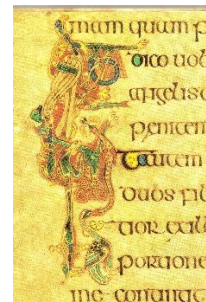 gmam quam p
dico uob
angelis
peniten
autem
duos fil
tior exill
portione
me conting